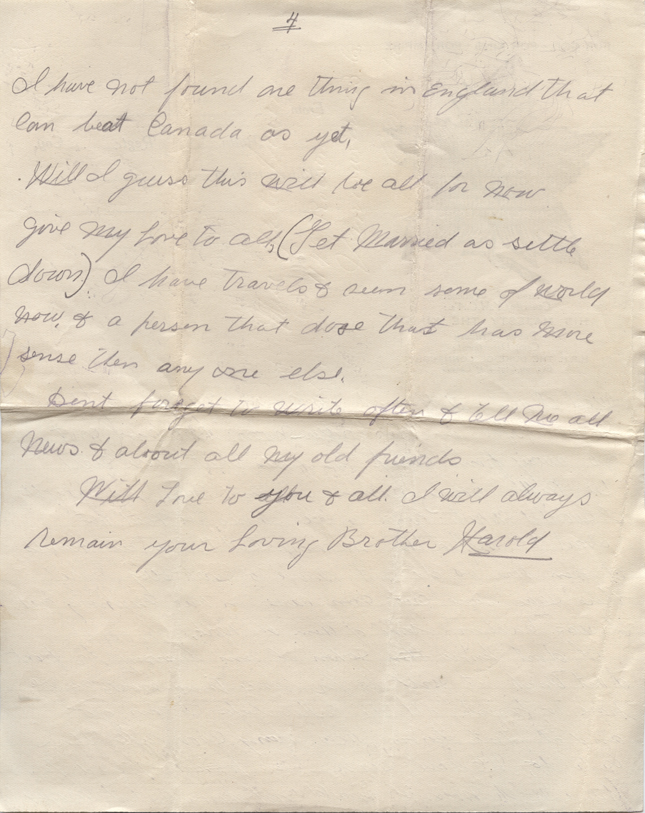 4
I have not found one thing in England that
can beat Canada as yet,
Will I guess this will be all for now
give my Love to all, (Get Married as settle
down). I have travels & seen some of world
now, & a person that dose that has more
sense then any one else.
Dont forget to write often & tell me all
News & about all my old friends
With Love to you & all. I will always
remain your Loving Brother Harold